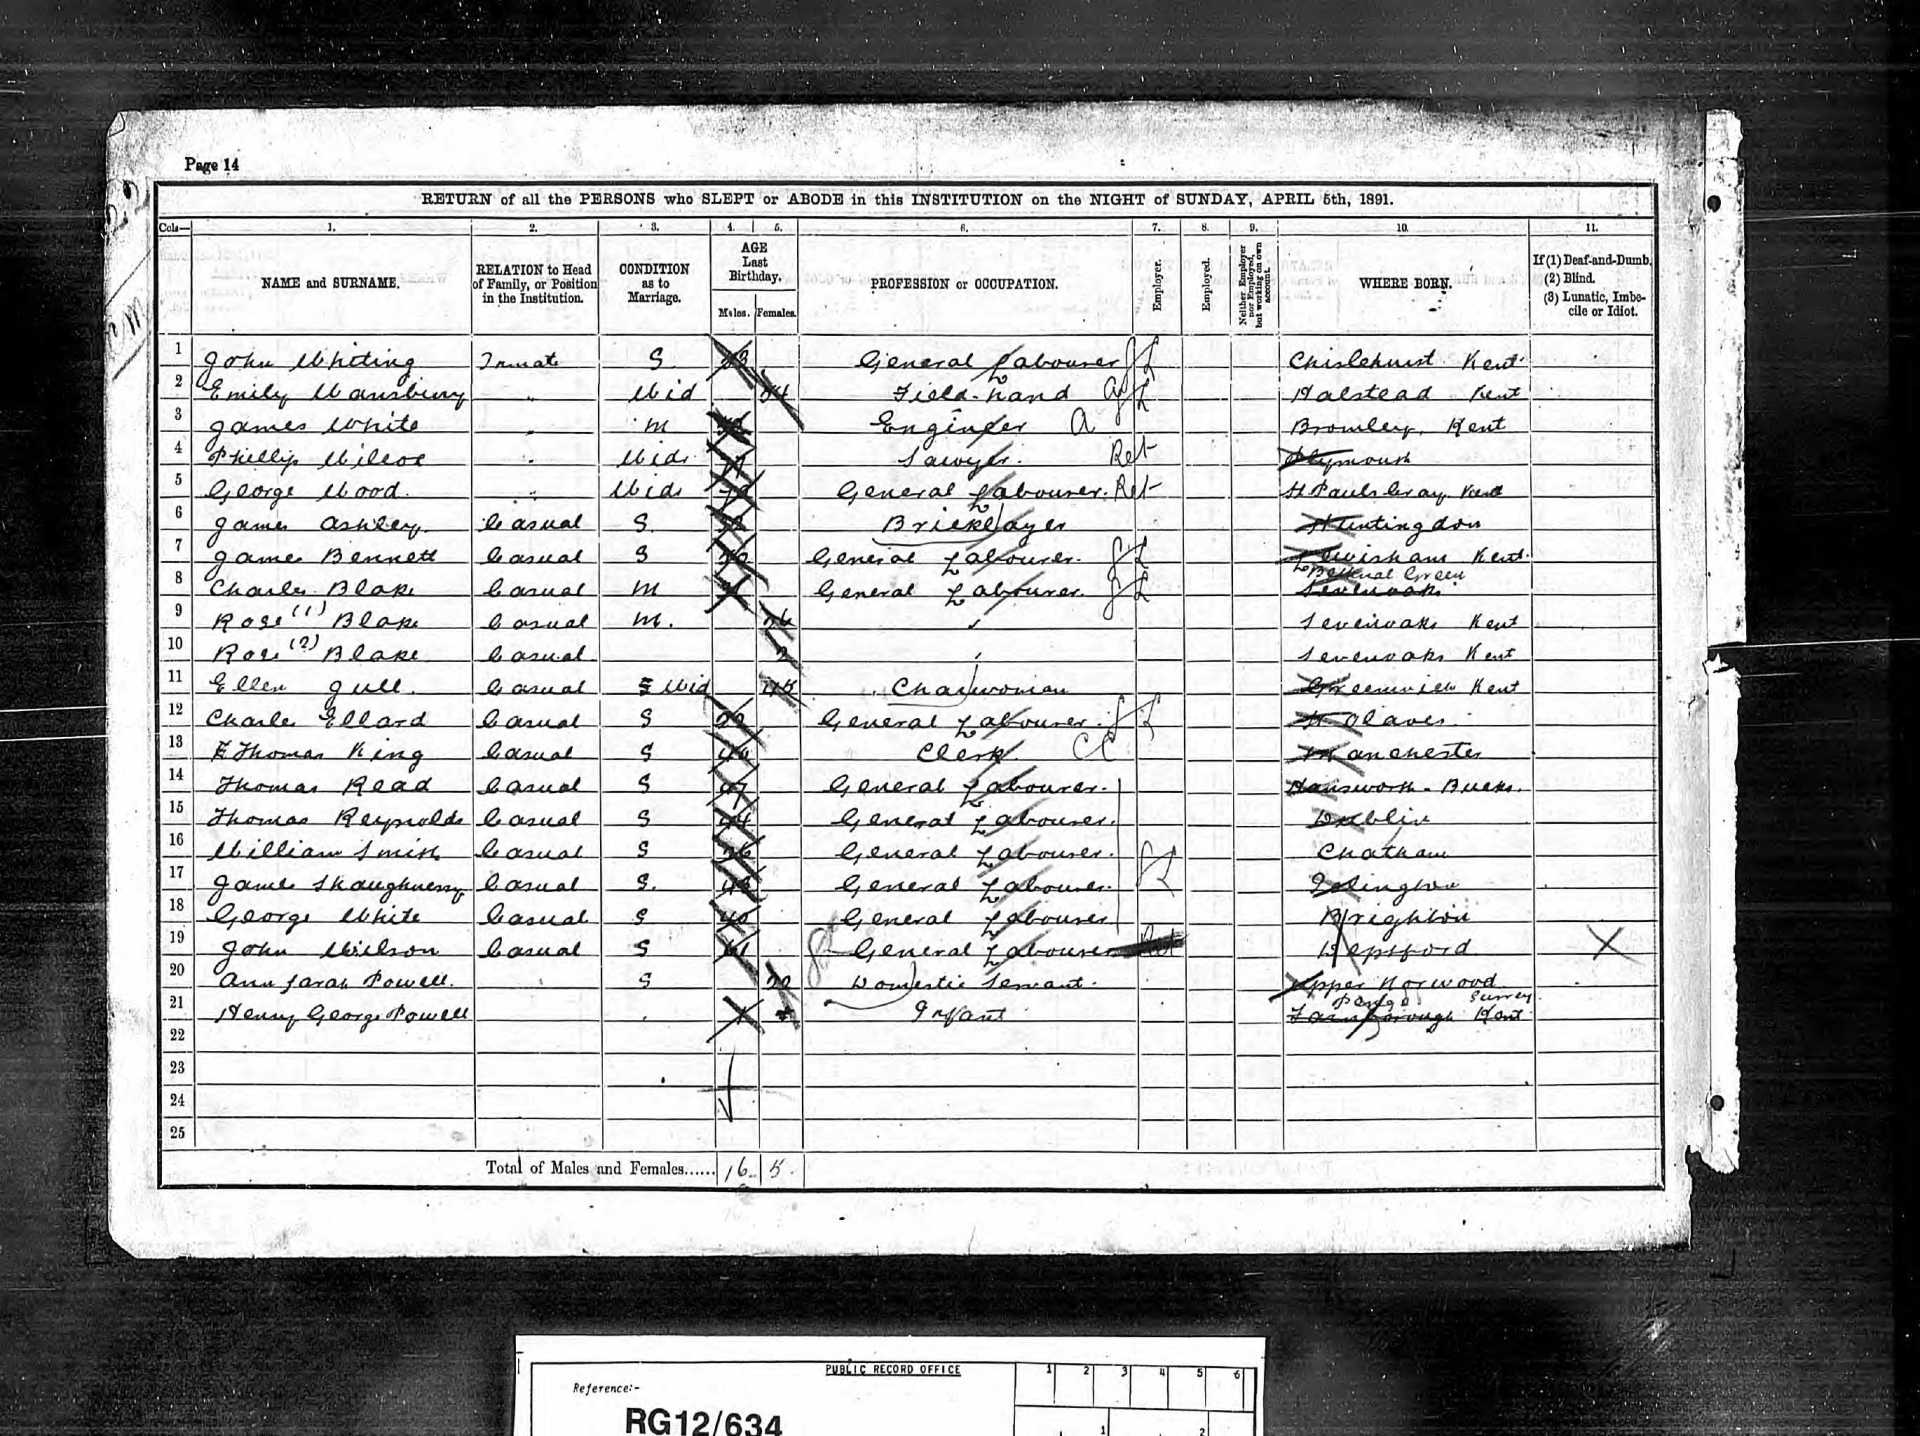 Page 14
RETURN of all the PERSONS who SLEPT or ABODE in this INSTITUTION on the NIGHT of SUNDAY, APRIL 5th, 1891.
Cols— 1. 2. 3. 4. 5. 6. 7. 8. 9. 10. 11.
NAME and SURNAME. RELATION to Head of Family, or Position in the Institution. CONDITION as to Marriage. AGE Last Birthday. Males. Females. PROFESSION or OCCUPATION. Employer. Employed. Neither Employer nor Employed, but working on own account. WHERE BORN. If (1) Deaf-and-Dumb. (2) Blind. (3) Lunatic, Imbecile or Idiot.
1 John Whiting Inmate S General Labourer GL Chislehurst Kent
2 Emily Wansbury " Wid Field-hand Ag L Halstead Kent
3 James White " M Engineer A Bromley, Kent
4 Phillip " Wid. 77 Sawyer. Ret Plymouth
5 George Wood. " Wid. General Labourer. Ret St Pauls Cray Kent
6 James Ashley. Casual S. Bricklayer Huntingdon
7 James Bennett Casual S General Labourer. GL Lewisham Kent.
8 Charles Blake Casual M General Labourer. GL Bethnal Green Sevenoaks
9 Rose (1) Blake Casual M. 26 Sevenoaks Kent
10 Rose (2) Blake Casual 2 Sevenoaks Kent
11 Ellen Gull. Casual S Wid 45 Charwoman Greenwich Kent
12 Charles Ellard Casual S General Labourer. GL St Olaves
13 E Thomas King Casual S Clerk. CC Manchester
14 Thomas Read Casual S 47 General Labourer. Hansworth. Bucks.
15 Thomas Reynolds Casual S 44 General Labourer. Dublin
16 William Smith Casual S General Labourer. Chatham
17 James Shaughnessy Casual S. General Labourer. GL Islington
18 George White Casual S 40 General Labourer Brighton
19 John Wilson Casual S 61 General Labourer Ret Deptford X
20 Ann Sarah Powell. S 20 Domestic Servant. Upper Norwood Surrey
21 Henry George Powell Infant Penge Farnborough Kent
22
23
24
25
Total of Males and Females...... 16 5.
PUBLIC RECORD OFFICE 1 2 3 4 5 6
Reference:-
RG12/634
1 2